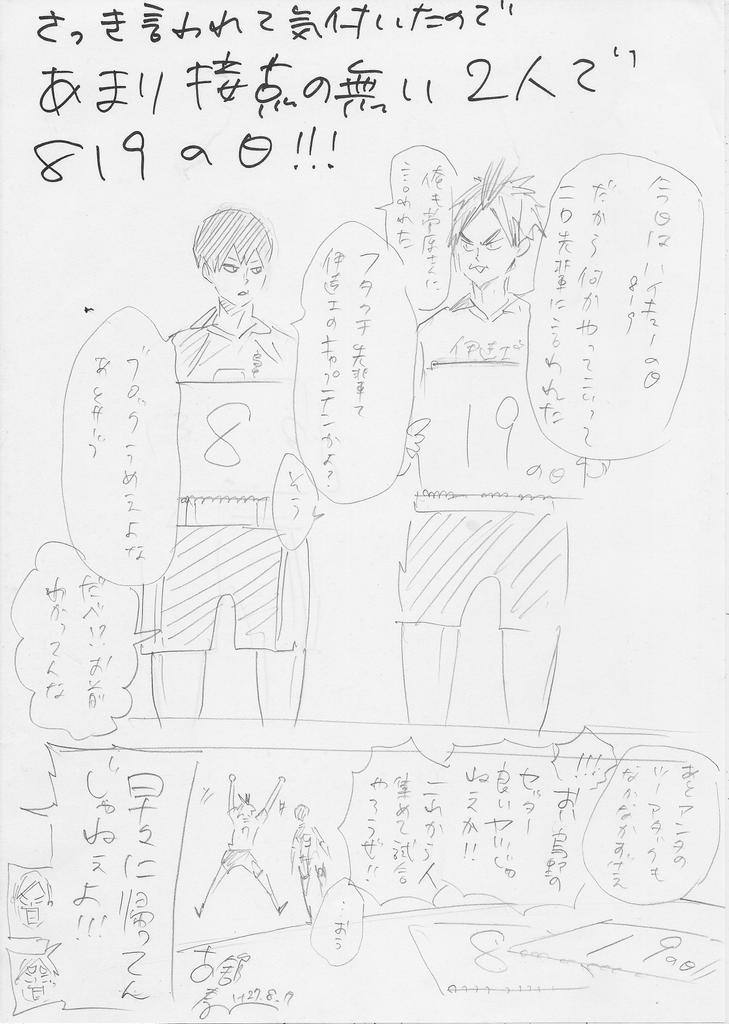 さっき言われて気付いたので
あまり接点の無い2人で
819の日!!!
今日はハイキューの日
819
だから何かやってこいって
二口先輩に言われた
俺も菅原さんに
言われた
フタクチ先輩って
伊達工のキャプテンかよ?
そう
ブロックうめえよな
あとサーブ
だべ!?お前
わかってんな
伊達工
8
19
の日
あとアンタの
ツーアタックも
なかなかすげえ
!!!
おい烏野の
セッター
良いヤツじゃ
ねぇか!!
二山から人
集めて試合
やろうぜ!!
…おう
8
19の日
早々に帰ってん
じゃねぇよ!!!
古舘
春
H27.8.19